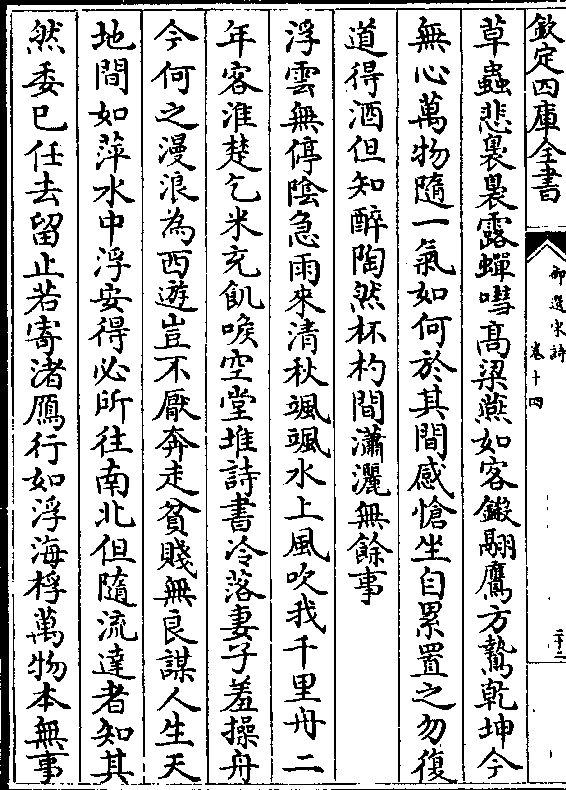 欽定四庫全書
御選宋詩
卷十四
二十二
草蟲悲裊裊露蟬嘒高梁燕如客鎩翮鷹方鷙乾坤今
無心萬物隨一氣如何於其間感愴坐自累置之勿復
道得酒但知醉陶然杯杓間瀟灑無餘事
浮雲無停陰急雨來清秋颯颯水上風吹我千里舟二
年客淮楚乞米充飢喉空堂堆詩書冷落妻子羞操舟
今何之漫浪為西遊豈不厭奔走貧賤無良謀人生天
地間如萍水中浮安得必所往南北但隨流達者知其
然委已任去留止若寄渚鴈行如浮海桴萬物本無事